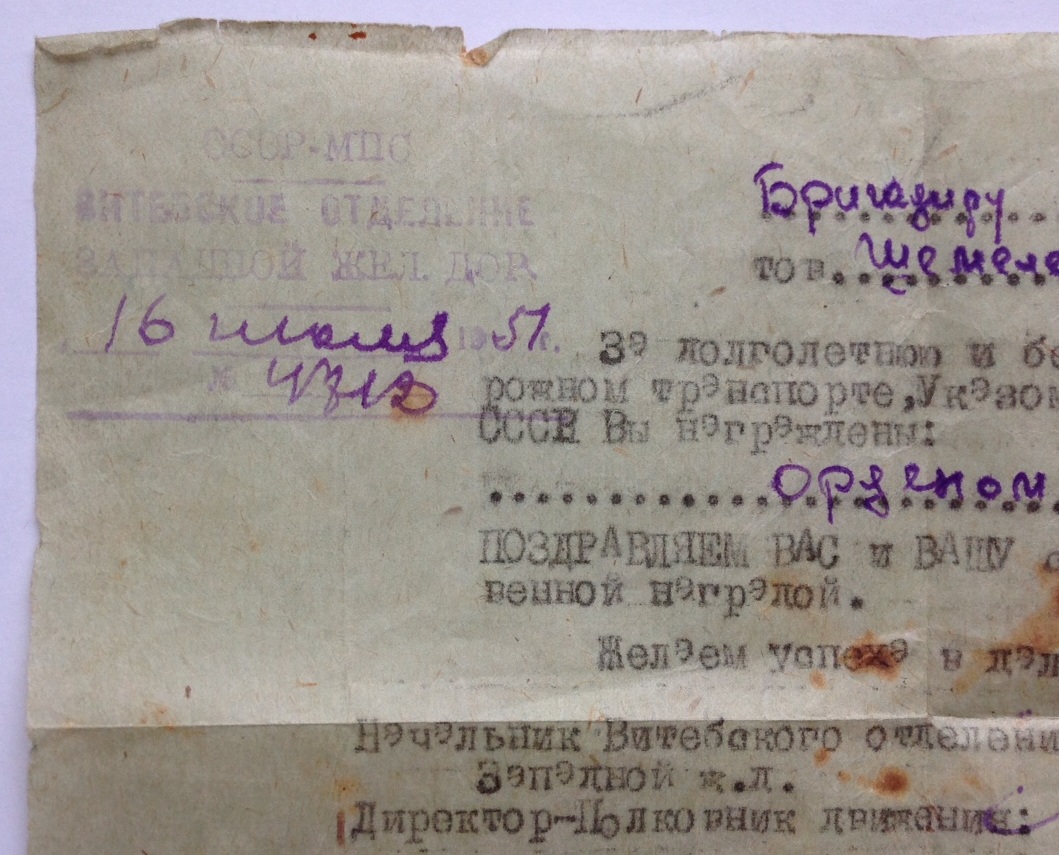 СССР-МПС
ВИТЕБСКОЕ ОТДЕЛЕНИЕ
ЗАПАДНОЙ ЖЕЛ. ДОР.
16 июля 1951 г.
№
Бригадиру
тов. Шемеле
За долголетнюю и бе
рожном транспорте, Указом
СССР Вы награждены:
Орденом
ПОЗДРАВЛЯЕМ ВАС и ВАШУ
венной наградой.
Желаем успеха в дал
Начальник Витебского отделени
Западной ж.д.
Директор-Полковник движения: